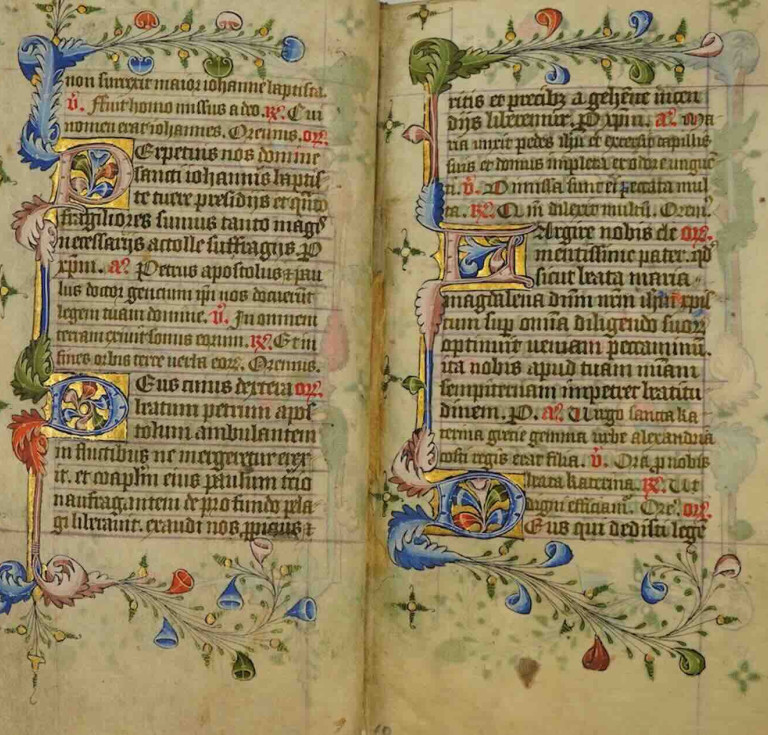 non surrexit maior iohanne baptista.
v̄. Fuit homo missus a deo. R̄. Cui
nomen erat iohannes. Oremus. or̄.
Perpetuis nos domine
sancti iohannis baptis
te tuere presidijs et qᷓto
fragiliores sumus tanto magꝭ
necessarijs attolle suffragijs. P
xp̄m. a᷎. Petrus apostolus ⁊ pau
lus doctor gencium ip̄i nos docuerūt
legem tuam domine. v̄. In omnem
terram exiuit sonus eorum. R̄. Et in
fines orbis terre verba eoꝝ. Oremus.
Deus cuius dextera or̄.
beatum petrum apos
tolum ambulantem
in fluctibus ne mergeretur erex
it. et coap̄lm eius paulum tcio
naufragantem de profundo pela
gi liberauit. exaudi nos ꝓpicius ⁊
ritis et precibꝫ a gehēne incen
dijs liberemur. P xp̄m. a᷎. Ma
ria unxit pedes ih̄u et extersit capillis
suis et domus impleta ē ex odore ungue
ti. v̄. Dimissa sunt ei peccata mul
ta. R̄. Qm̄ dilexit multū. Orem̄.
Largire nobis cle or̄.
mentissime pater. qd̄
sicut beata maria
magdalena dn̄m nr̄m ih̄m xp̄m
cum suꝑ omīa diligendo suoꝝ
optinuit ueniam peccaminū.
ita nobis apud tuam miām
sempiternam impetret beatitu
dinem. P. a᷎. Uirgo sancta ka
terina grecie gemma urbe alexandria
costi regis erat filia. v̄. Ora ꝑ nobis
beata katerina. R̄. Ut
digni efficiam̄. Ore᷎. or̄.
Deus qui dedisti lege